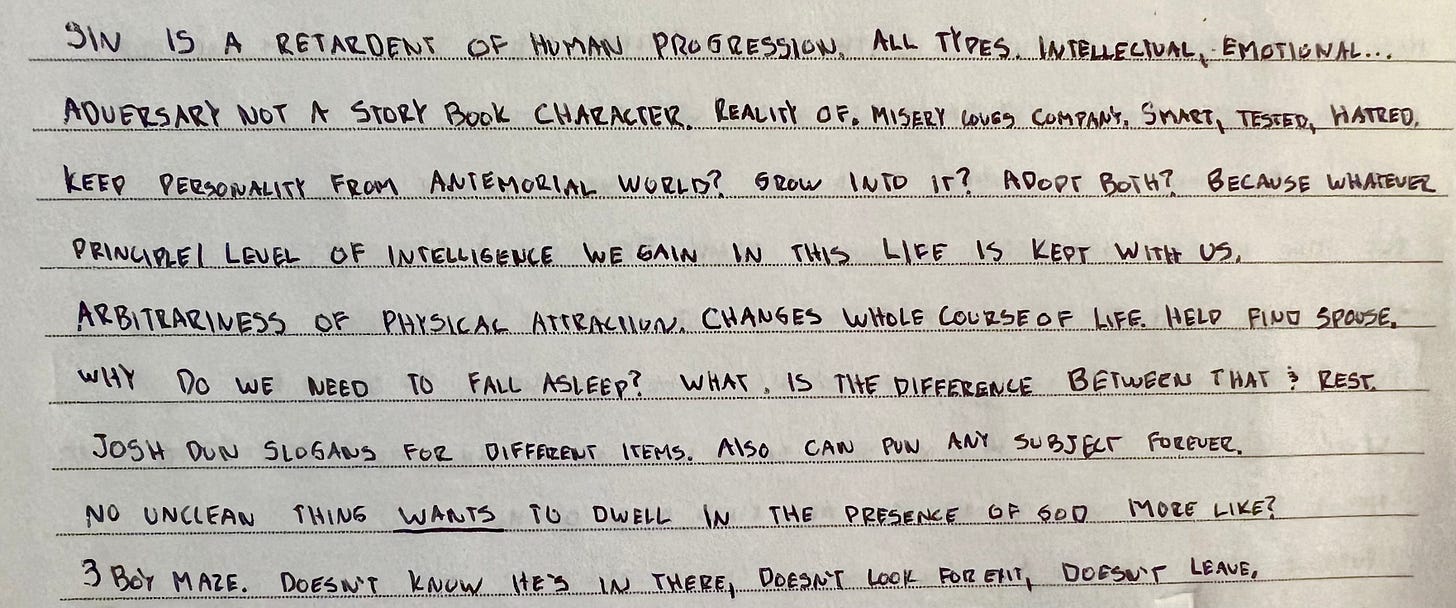 SIN IS A RETARDENT OF HUMAN PROGRESSION. ALL TYPES. INTELLECTUAL, EMOTIONAL...
ADVERSARY NOT A STORY BOOK CHARACTER. REALITY OF. MISERY LOVES COMPANY. SMART, TESTED, HATRED.
KEEP PERSONALITY FROM ANTEMORIAL WORLD? GROW INTO IT? ADOPT BOTH? BECAUSE WHATEVER
PRINCIPLE/LEVEL OF INTELLIGENCE WE GAIN IN THIS LIFE IS KEPT WITH US.
ARBITRARINESS OF PHYSICAL ATTRACTION. CHANGES WHOLE COURSE OF LIFE. HELP FIND SPOUSE.
WHY DO WE NEED TO FALL ASLEEP? WHAT IS THE DIFFERENCE BETWEEN THAT & REST.
JOSH DUN SLOGANS FOR DIFFERENT ITEMS. ALSO CAN PUN ANY SUBJECT FOREVER.
NO UNCLEAN THING WANTS TO DWELL IN THE PRESENCE OF GOD MORE LIKE?
3 BOY MAZE. DOESN'T KNOW HE'S IN THERE, DOESN'T LOOK FOR EXIT, DOESN'T LEAVE,